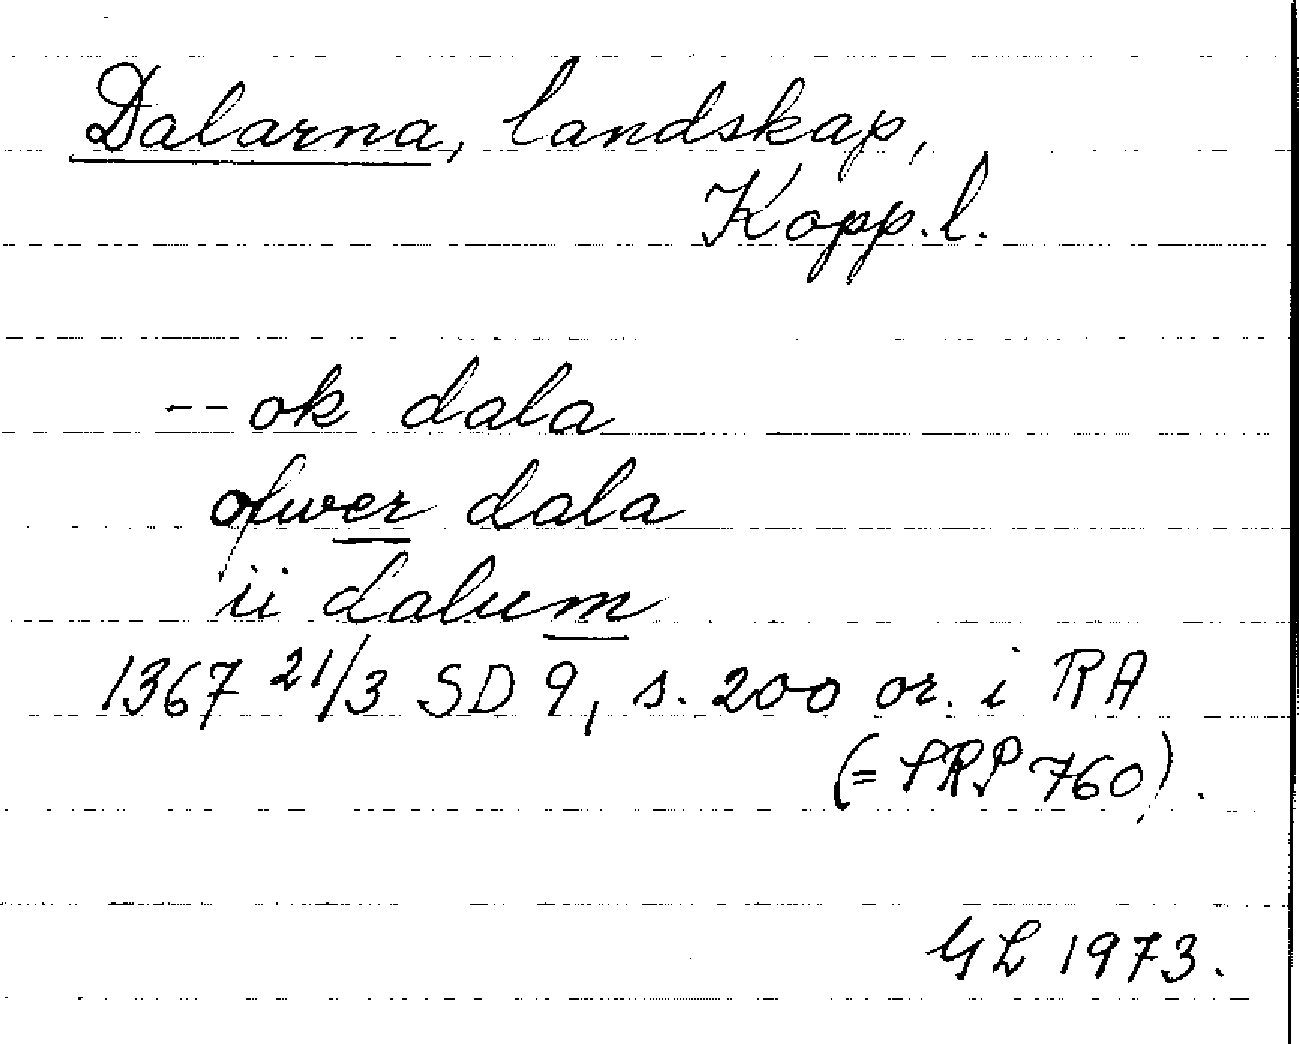 Dalarna, landskap,
Kopp.l.
-- ok dala
ofwer dala
ii dalum
1367 21/3 SD 9, s. 200 or. i RA
(= SRP 760).
GL 1973.